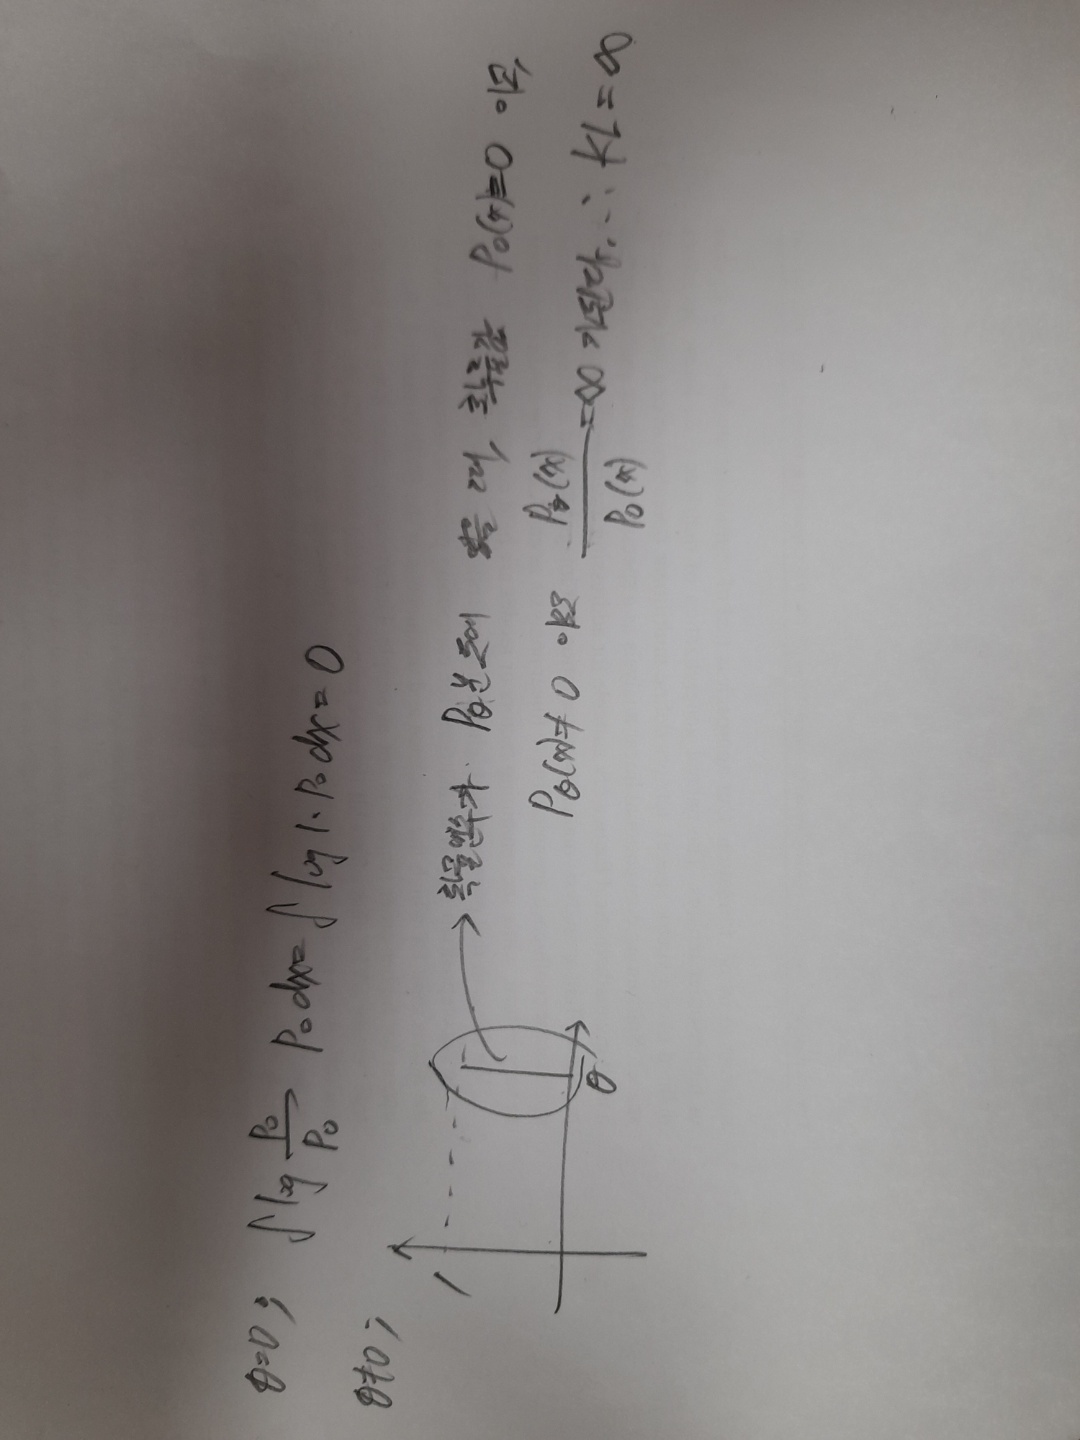 θ=0; ∫ log P₀/P₀ P₀dx = ∫ log 1. P₀dx = 0
θ≠0;
1
θ
확률변수가 Pθ분포에 있을 때, 확률값 P₀(x)=0 이고,
Pθ(x)≠0 이므로 Pθ(x)/P₀(x) = ∞ 가 된다. ∴ KL = ∞